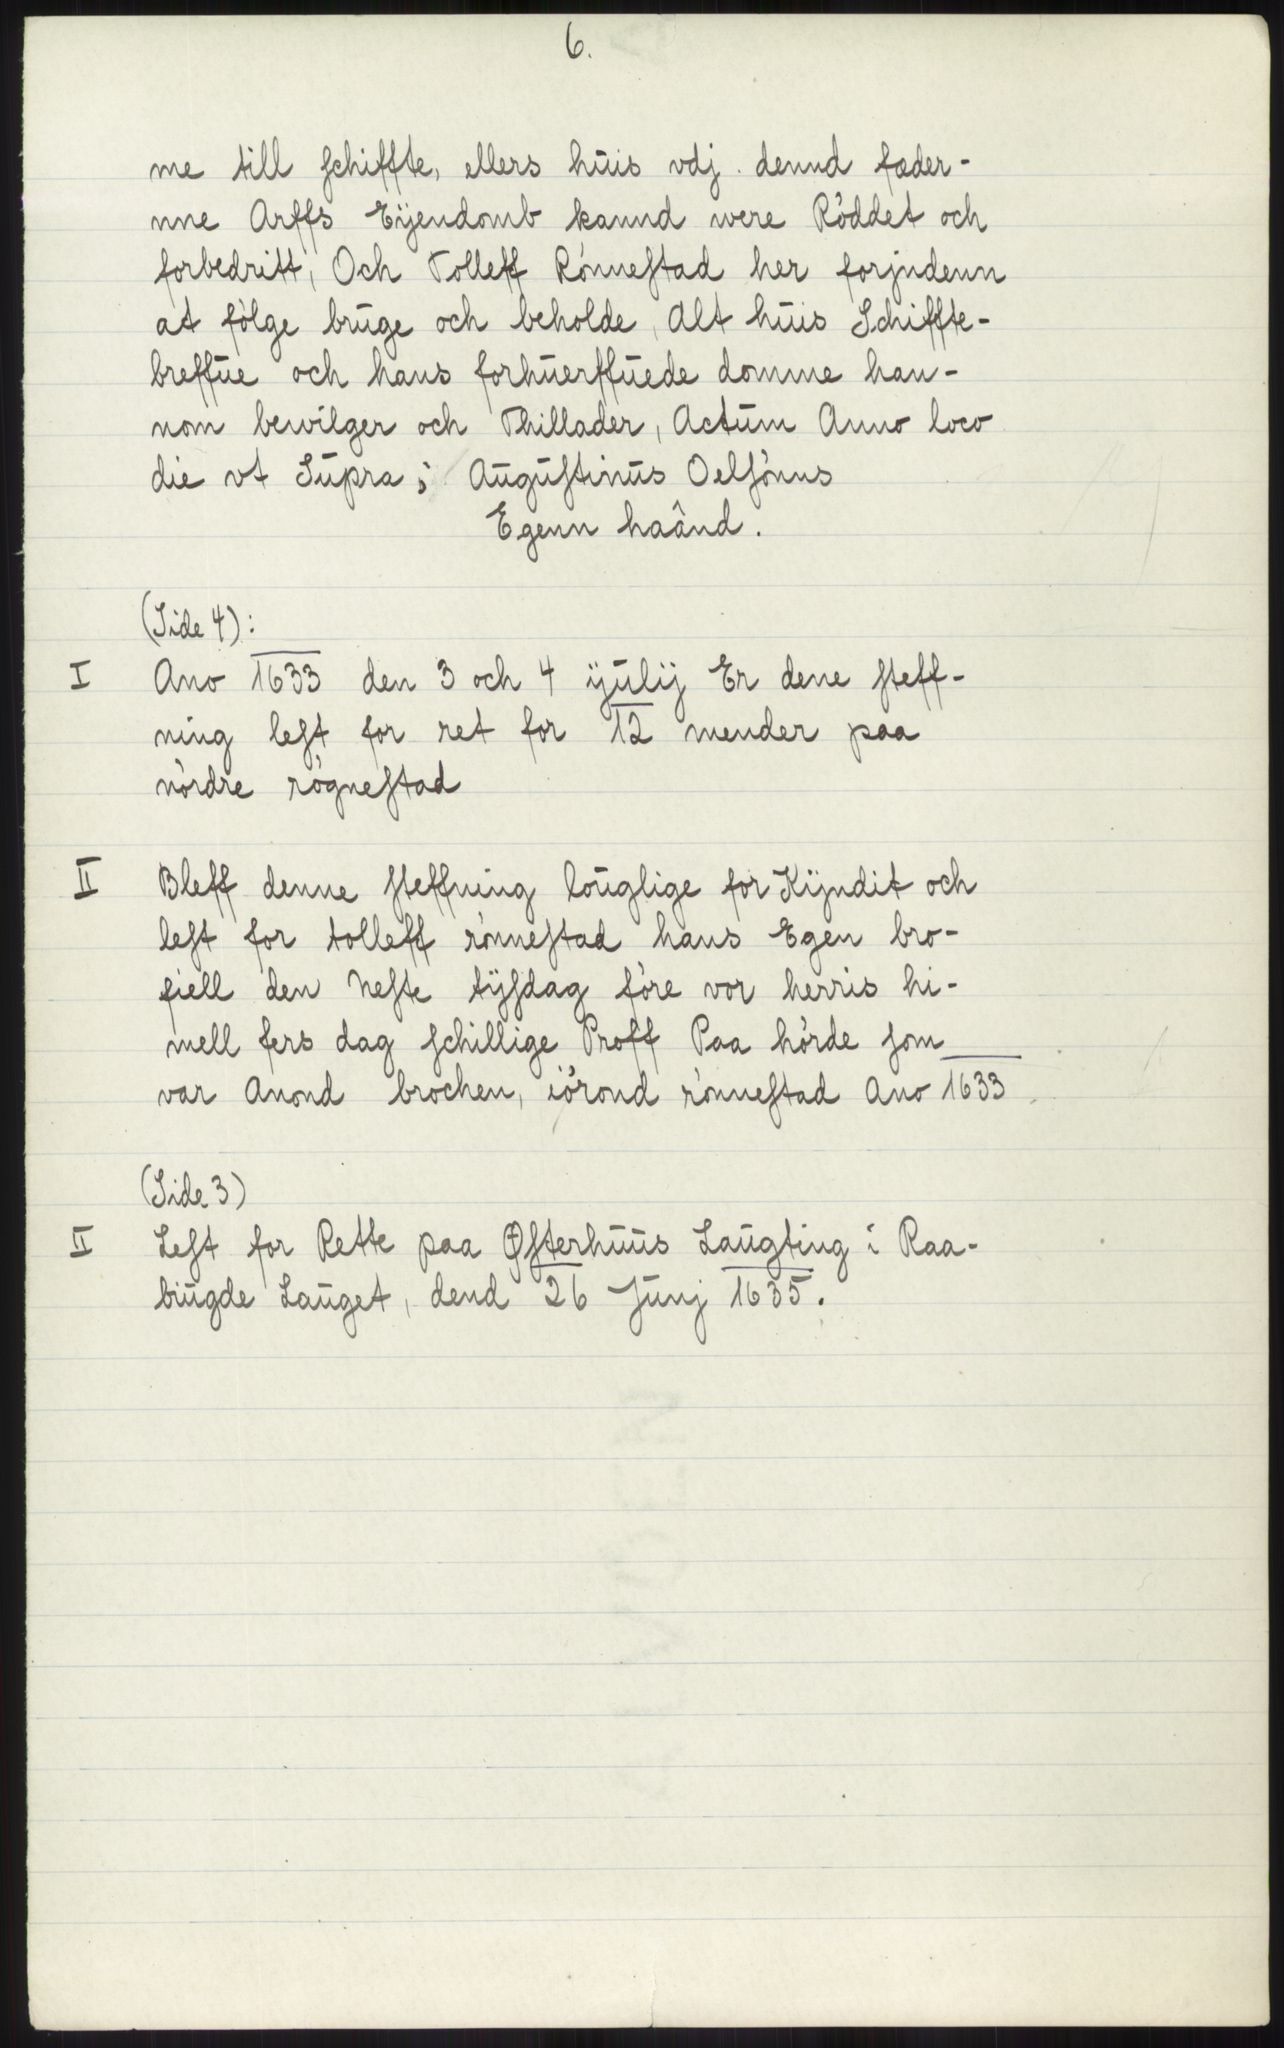 6.
me till schiffte, ellers huis vdj dennd fæder-
nne Arffs Eÿendomb kannd were Röddet och
forbedritt, Och Tolleff Rönnestad her forjndenn
at fölge brŭge och beholde, Alt hŭis Schiffte-
breffŭe och hans forhŭerffŭede domme han-
nom bewilger och Thillader, Actŭm Anno loco
die vt Sŭpra; Aŭgŭstinŭs Oelsönns
Egenn haând.
(Side 4):
I Ano 1633 den 3 och 4 ijŭlij Er dene steff-
ning lest for ret for 12 mender paa
nördre rögnestad
II Bleff denne steffning loŭglige for Kÿndit och
lest for tolleff rönnestad hans Egen bro-
fiell den Neste tÿsdag före vor herris hi-
mell fers dag schillige Proff Paa hörde som
var Anond brochen, iörond rönnestad Ano 1633
(Side 3)
II Lest for Rette paa Østerhŭŭs Laŭgting i Raa-
biŭgde Laŭget, dend 26 Jŭnj 1635.